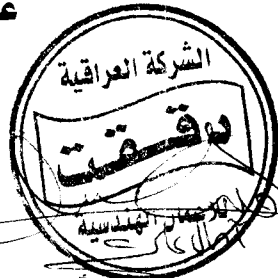 ع
الشركة العراقية
دققت
للاعمال الهندسية